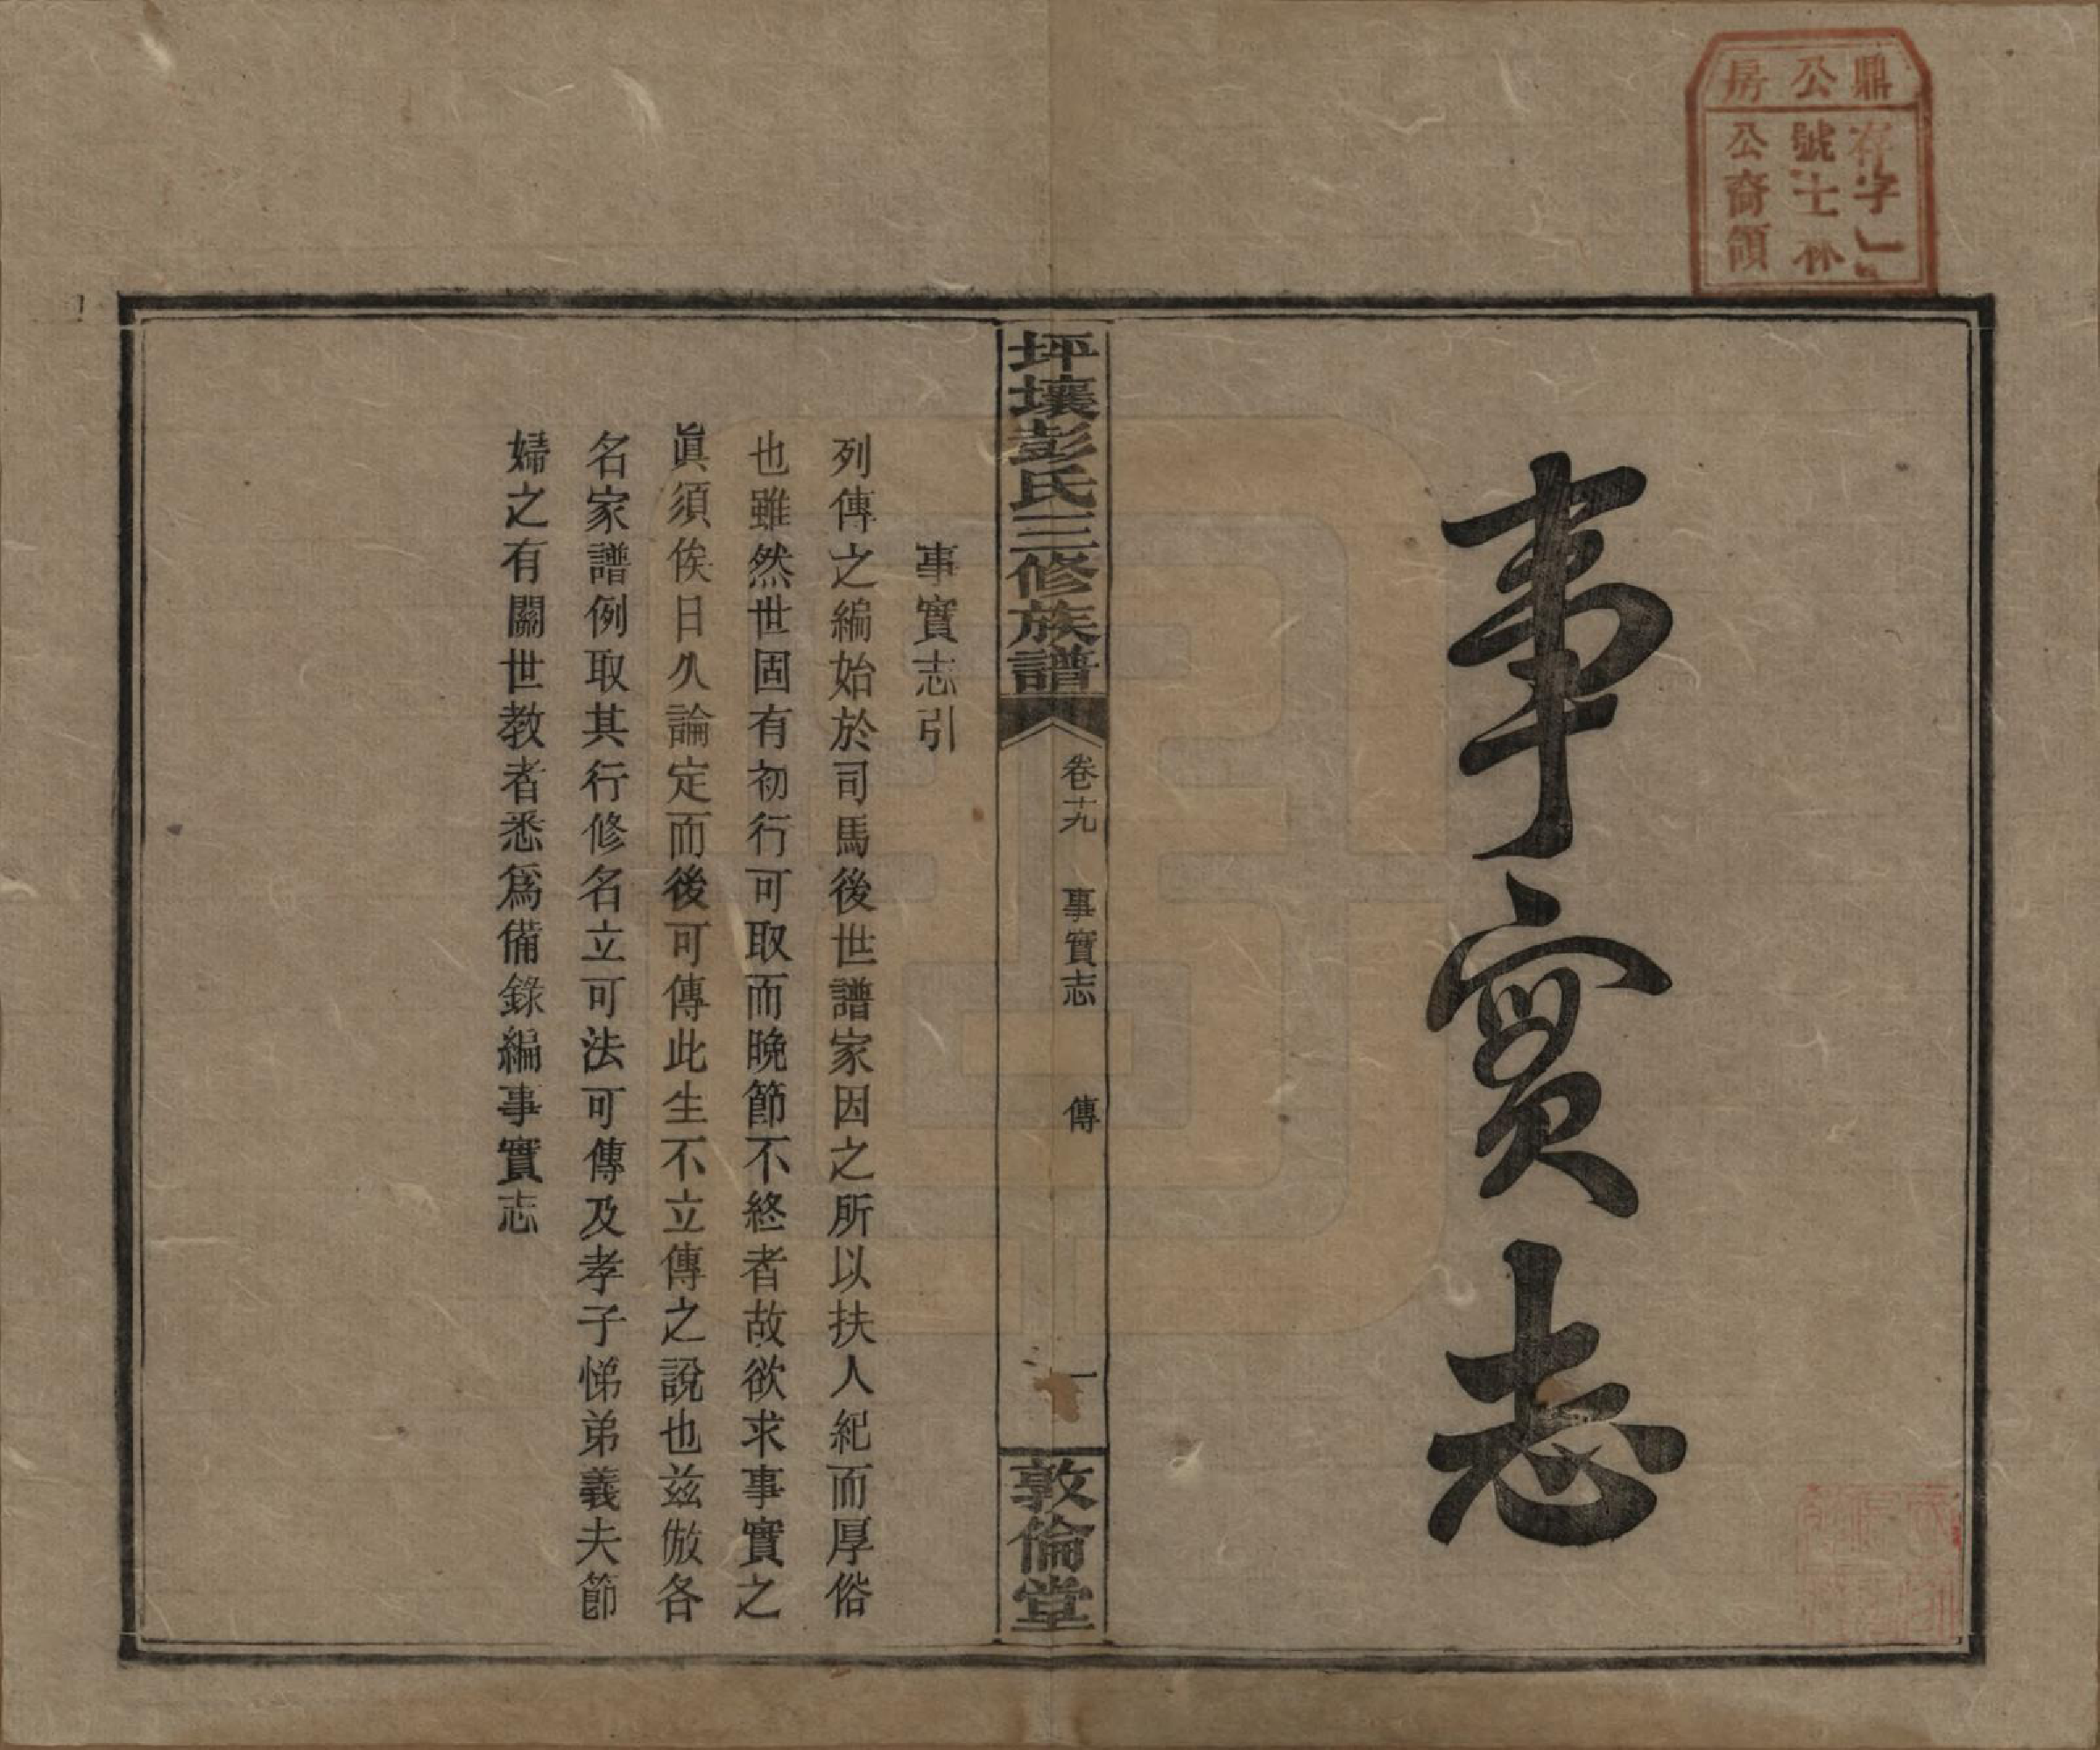 鼎公房
存字
號士林
公裔領
事實志
坪壤彭氏三修族譜
卷十九
事實志
傳
一
敦倫堂
事實志引
列傳之編始於司馬後世譜家因之所以扶人紀而厚俗
也雖然世固有初行可取而晚節不終者故欲求事實之
眞須俟日久論定而後可傳此生不立傳之說也兹倣各
名家譜例取其行修名立可法可傳及孝子悌弟義夫節
婦之有關世教者悉爲備錄編事實志